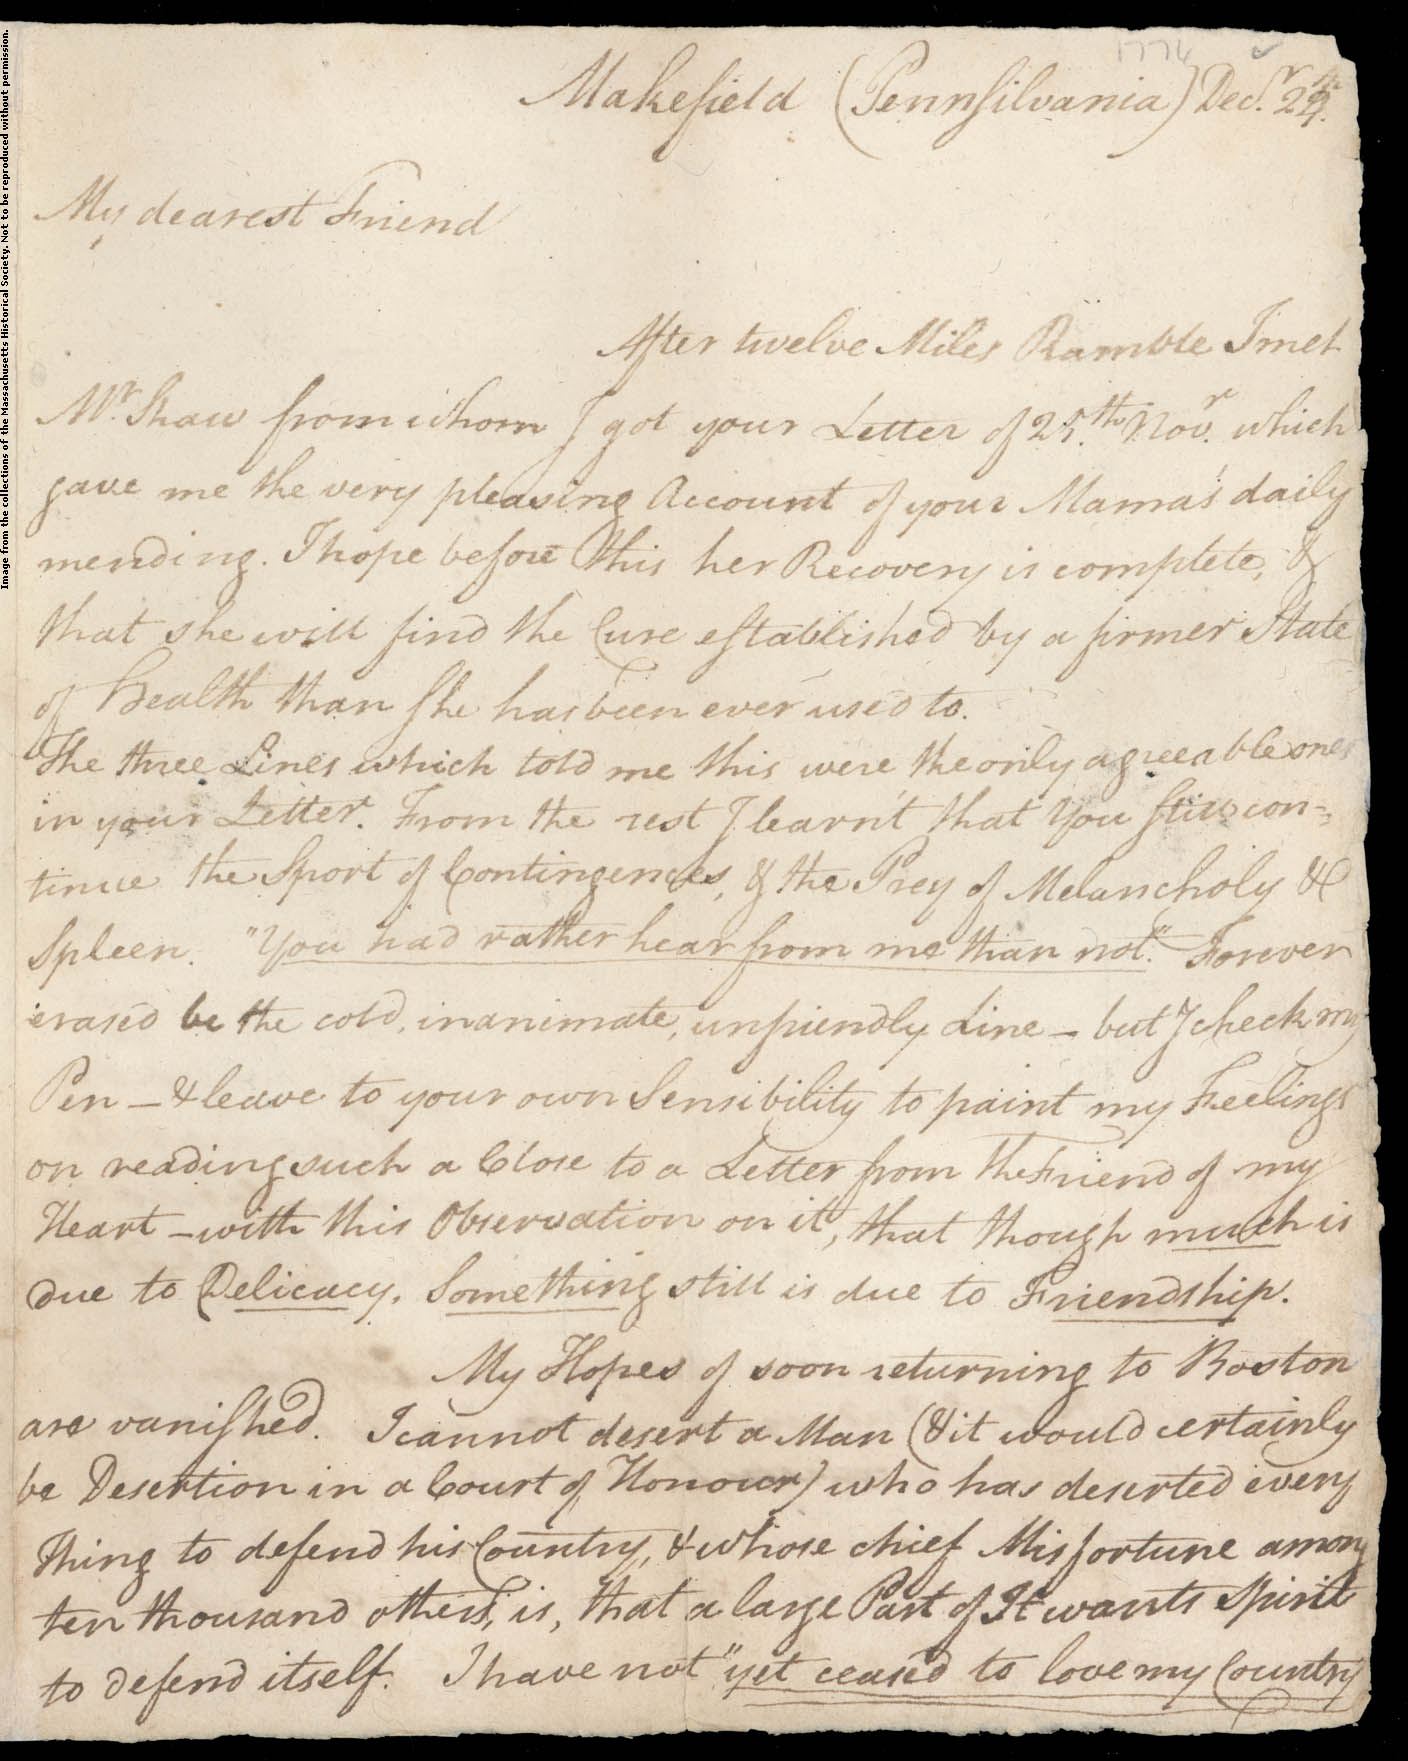 Image from the collections of the Massachusetts Historical Society. Not to be reproduced without permission.
1776
Makefield (Pennsilvania) Decr. 24.
My dearest Friend
After twelve Miles Ramble I met
Mr. Shaw from whom I got your Letter of 25.th Novr. which
gave me the very pleasing Account of your Mama's daily
mending. I hope before this her Recovery is complete, &
that she will find the Cure established by a firmer State
of Health than she has been ever used to.
The three Lines which told me this were the only agreeable ones
in your Letter. From the rest I learn't that You still con=
tinue the Sport of Contingences, & the Prey of Melancholy &
Spleen. "You had rather hear from me than not." Forever
erased be the cold, inanimate, unfriendly Line – but I check my
Pen – & leave to your own Sensibility to paint my Feelings
on reading such a Close to a Letter from the Friend of my
Heart – with this Observation on it, that though much is
due to Delicacy, Something still is due to Friendship.
My Hopes of soon returning to Boston
are vanished. I cannot desert a Man (& it would certainly
be Desertion in a Court of Honour) who has deserted every
thing to defend his Country, & whose chief Misfortune among
ten thousand others, is, that a large Part of It wants Spirit
to defend itself. I have not "yet ceased to love my Country